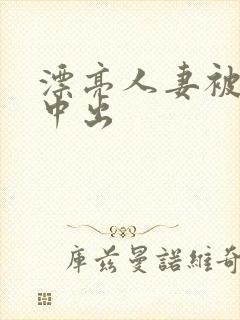 漂亮人妻被
中出
库兹曼諾維奇